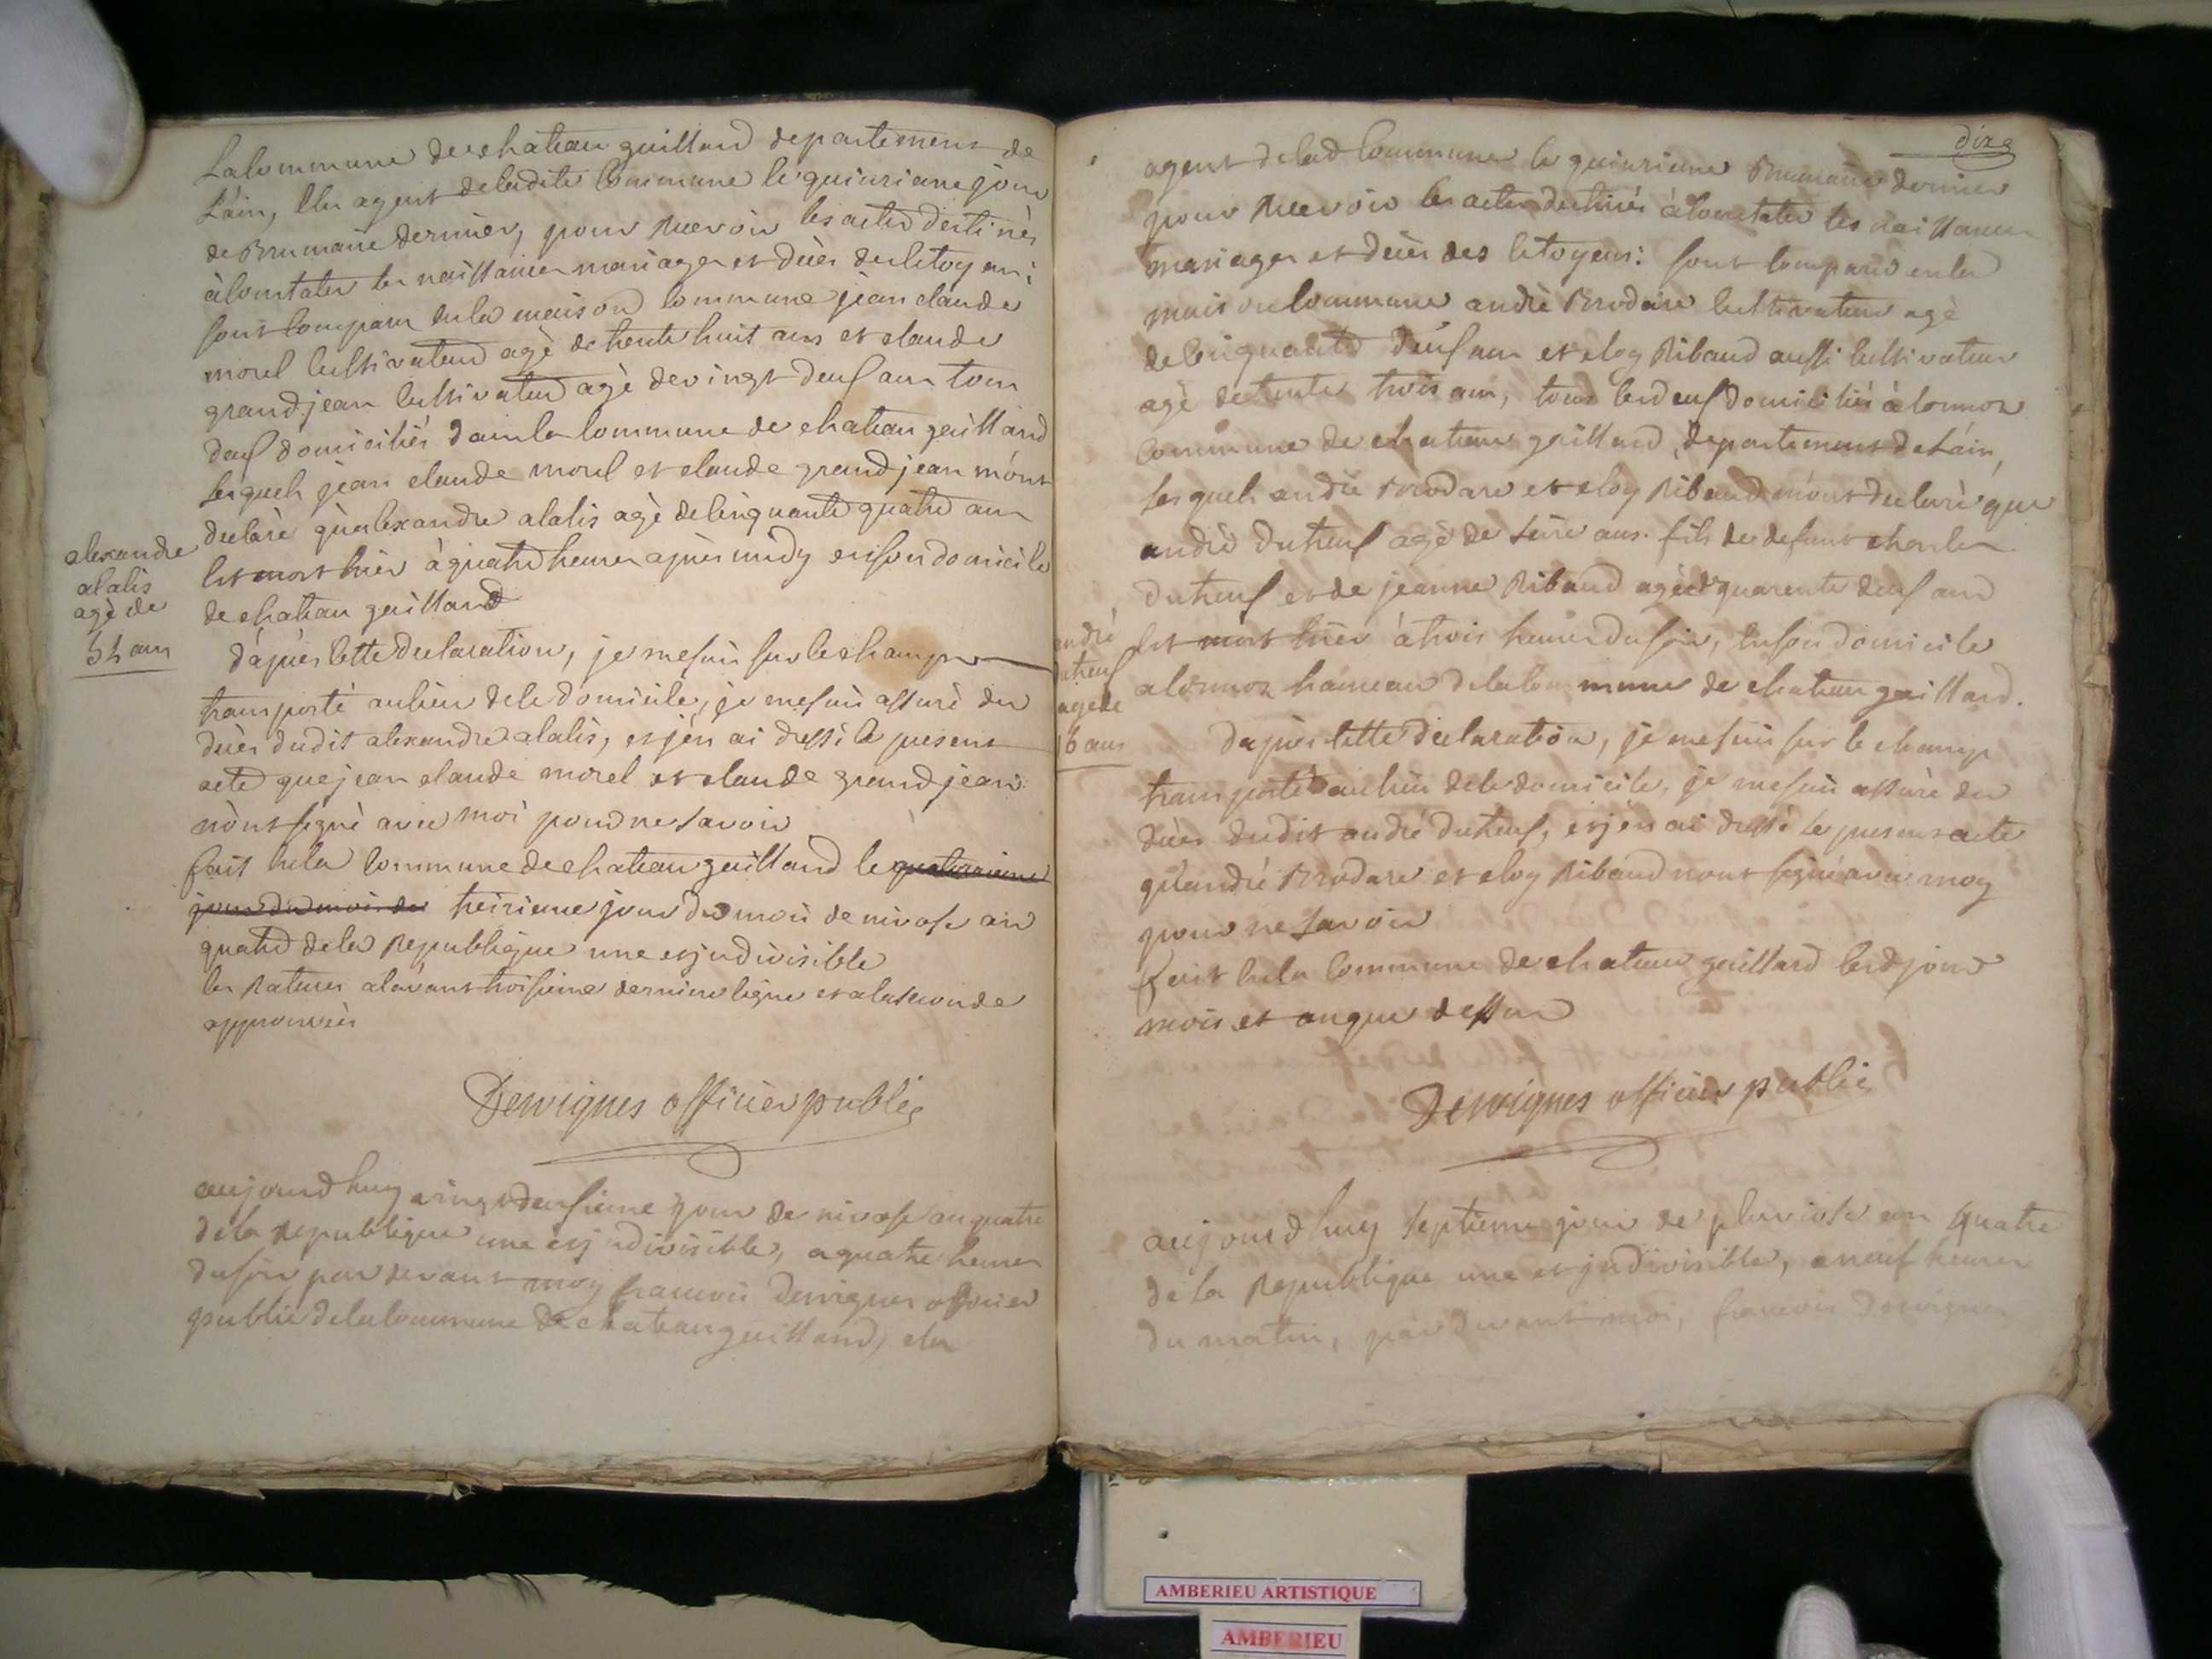 Lacommune de chateau gaillard departement de
L'áin, Elu agent deladite Commune le quinzieme jour
de Brumaire dernier, pour Recevoir les actes destinés
àconstater les naissances mariages et décés des citoyens:
sont comparu enla maison commune jean claude
morel cultivateur agè de trente huit ans et claude
grandjean cultivateur agè devingt deux ans tous
deux domiciliés dans la commune de chateau gaillard
lesquels jean claude morel et claude grandjean m'ont
declaré qu'alexandre alalis agè decinquante quatre ans
est mort hier à quatre heures aprés midy enson domicile
de chateau gaillard
alexandre
alalis
agè de
54 ans
d'aprés cette declaration, je mesuis sur le champ
transporté aulieu dece domicile, je mesuis assuré du
décès dudit alexandre alalis, et j'en ai dressé le present
acte que jean claude morel et claude grandjean
n'ont signé avec moi pour ne savoir
fait enla Commune de chateau gaillard le quatorzieme
jour du mois de treizieme jour du mois de nivose an
quatre dela Republique une et jndivisible
les Ratures alavant troisieme derniere ligne et alaseconde
approuvées
Dervignes officier public
aujourdhuy vingtdeusieme jour de nivose an quatre
de la Republique une et jndivisible, a quatre heures
dusoir par devant moy francois Dervignes officier
public delacommune de chateau gaillard, elu
dix 9
agent delad commune le quinzieme Brumaire dernier
pour Recevoir les actes destinés àconstater les naissances
mariages et décés des citoyens: sont comparus enla
maison commune andré Brodare cultivateur agè
decinquante deux ans et eloy Ribaud aussi cultivateur
agè detrente trois ans, tous les deux domiciliés àcormoz
Commune de chateau gaillard, departement de L'áin,
Lesquels andré Brodare et eloy Ribaud m'ont declaré que
andré duteuf agè de seize ans fils de defunt charles
duteuf et de jeanne Ribaud agée de quarente deux ans
est mort hier à trois heures dusoir, enson domicile
a cormoz hameau delacommune de chateau gaillard.
andré
duteuf
agé de
16 ans
D'aprés cette declaration, je mesuis sur le champ
transporté aulieu dece domicile, je mesuis assuré du
décés dudit andré duteuf, et j'en ai dressé le present acte
qu'andré Brodare et eloy Ribaud nont signé avec moy
pour ne savoir
fait enla Commune de chateau gaillard lesd jour
mois et an que dessus
Dervignes officier public
aujourdhuy septieme jour de pluviose an quatre
de la Republique une et jndivisible, a neuf heures
du matin, par devant moi, francois dervignes
AMBERIEU ARTISTIQUE
AMBERIEU